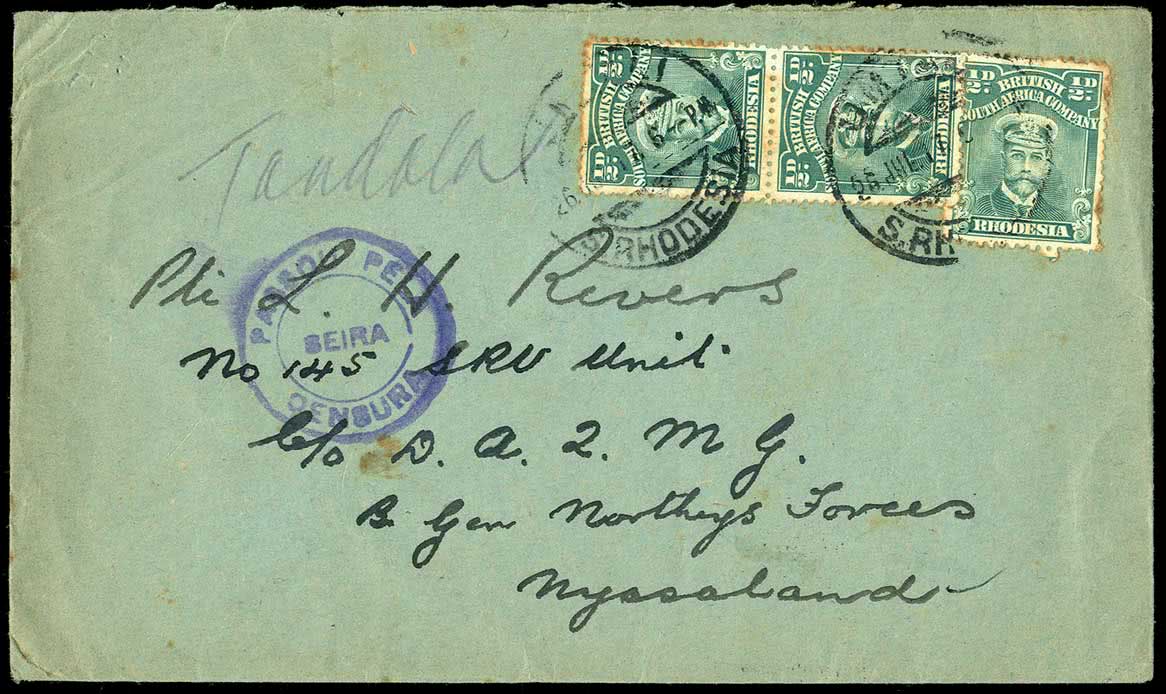 ½D ½D
BRITISH SOUTH AFRICA COMPANY
RHODESIA
½D ½D
BRITISH SOUTH AFRICA COMPANY
RHODESIA
½D ½D
BRITISH SOUTH AFRICA COMPANY
RHODESIA
26 6 - PM
RHODESIA
26 JUL
S.RH
Pte L. H. Revers
PELA
BEIRA
CENSURA
No 145 SRV Unit
C/o D. A. Q. M. G.
B. Gen Northeys Forces
Nyasaland